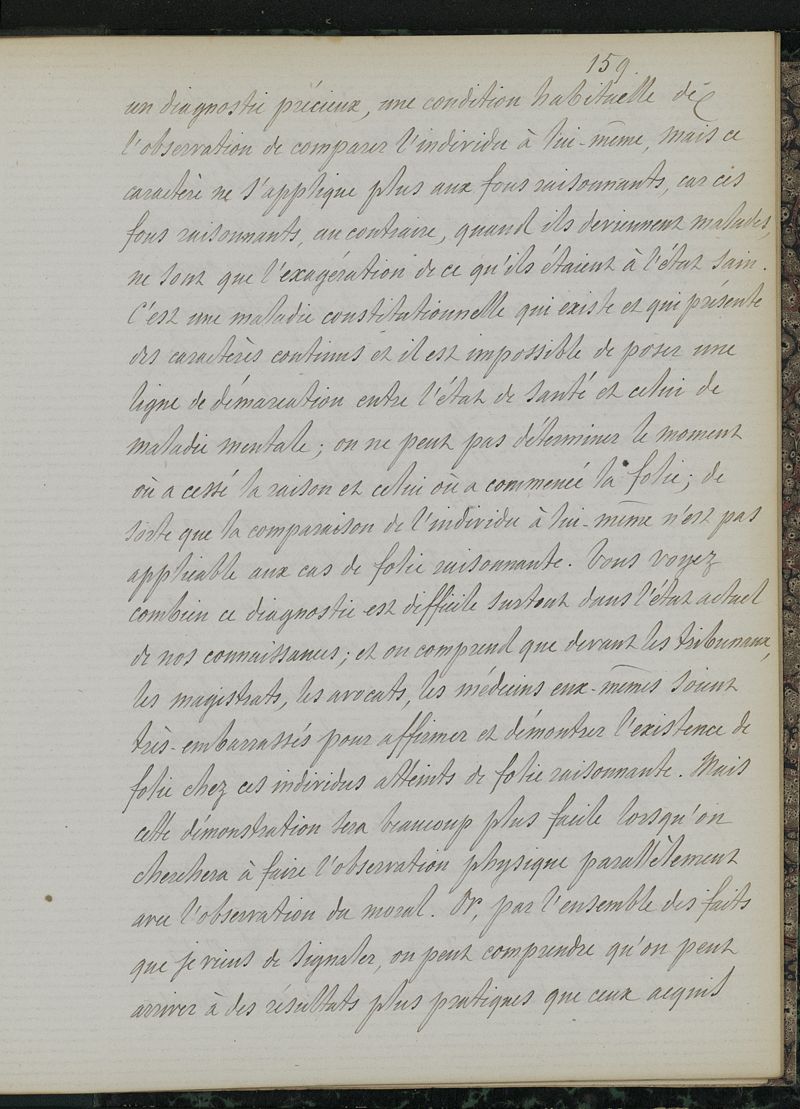 159
un diagnostic précieux, une condition habituelle de
l'observation de comparer l'individu à lui-même, mais ce
caractère ne s'applique plus aux fous raisonnants, car ces
fous raisonnants, au contraire, quand ils deviennent malades,
ne sont que l'exagération de ce qu'ils étaient à l'état sain.
C'est une maladie constitutionnelle qui existe et qui présente
des caractères continus et il est impossible de poser une
ligne de démarcation entre l'état de santé et celui de
maladie mentale ; on ne peut pas déterminer le moment
où a cessé la raison et celui où a commencé la folie ; de
sorte que la comparaison de l'individu à lui-même n'est pas
applicable aux cas de folie raisonnante. Vous voyez
combien ce diagnostic est difficile surtout dans l'état actuel
de nos connaissances ; et on comprend que devant les tribunaux,
les magistrats, les avocats, les médecins eux-mêmes soient
très-embarrassés pour affirmer et démontrer l'existence de
folie chez ces individus atteints de folie raisonnante. Mais
cette démonstration sera beaucoup plus facile lorsqu'on
cherchera à faire l'observation physique parallèlement
avec l'observation du moral. Or, par l'ensemble des faits
que je viens de signaler, on peut comprendre qu'on peut
arriver à des résultats plus pratiques que ceux acquis